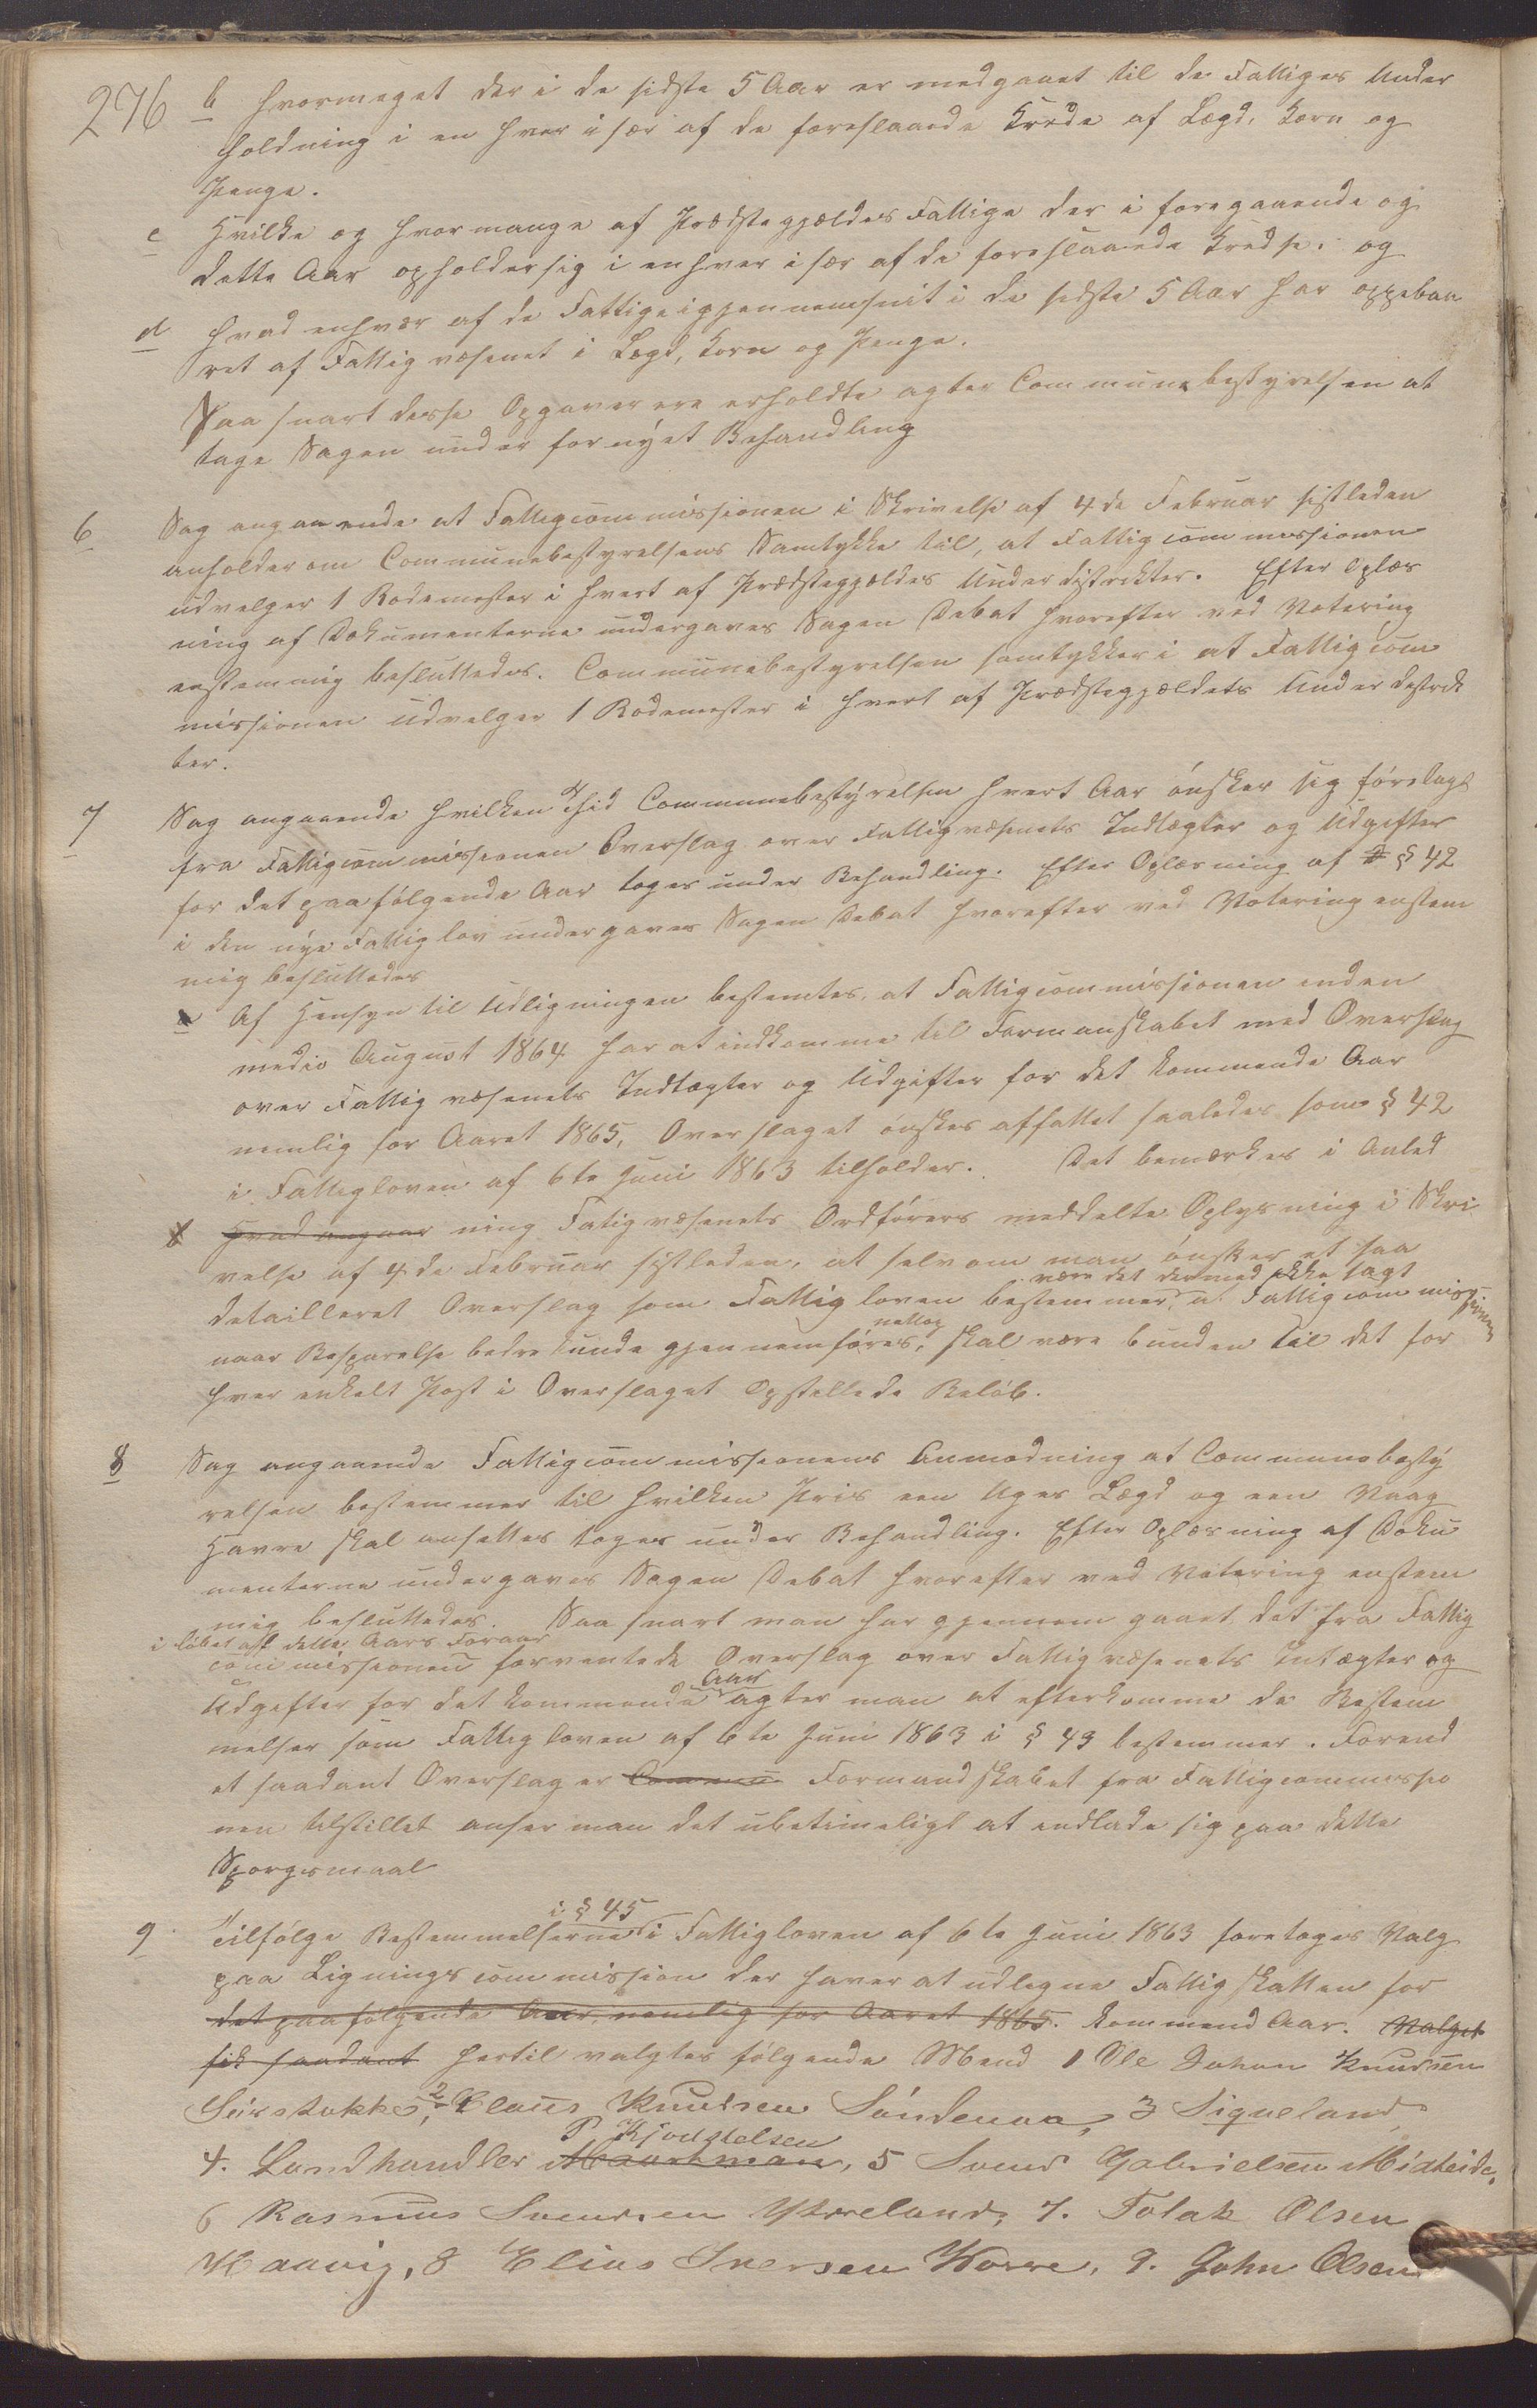 276 b hvormeget der i de sidste 5 Aar er medgaaet til de Fattiges Under
holdning i en hver især af de foreslaaede Krede af Lægd, Korn og
Penge.
c Hvilke og hvormange af Prædstegjældes Fattige der i foregaaende og
dette Aar opholder sig i enhver især af de foreslaaede Kredse. og
d hvad enhver af de Fattige igjennemsnit i de sidste 5 Aar har oppebaa
ret af Fattigvæsenet i Lægd, Korn og Penge.
Saasnart disse Opgaver ere erholdte agter Communebestyrelsen at
tage Sagen under fornyet Behandling
6 Sag angaaende at Fattigcommissionen i Skrivelse af 4de Februar sistleden
anholder om Communebestyrelsens Samtykke til, at Fattigcommissionen
udvelger 1 Rodemester i hvert af Prædstegjældes Underdistrikter. Efter Oplæs
ning af Dokumenterne undergaves Sagen Debat hvorefter ved Votering
enstemmig besluttedes. Communebestyrelsen samtykker i at Fattigcom
missionen udvelger 1 Rodemester i hvert af Prædstegjældets Under distrik
ter.
7 Sag angaaende hvilken Thid Communebestyrelsen hvert Aar ønsker sig forelagt
fra Fattigcommissionen Overslag over Fattigvæsenets Indtægter og Udgifter
for det paafølgende Aar toges under Behandling. Efter Oplæsning af § 42
i den nye Fattiglov undergaves Sagen Debat hvorefter ved Votering enstem
mig besluttedes
a Af Hensyn til Udligningen bestemtes, at Fattigcommissionen inden
medio August 1864 har at indkomme til Formanskabet med Overslag
over Fattigvæsenets Indtægter og Udgifter for det kommende Aar
nemlig for Aaret 1865, Overslaget ønskes affattet saaledes som § 42
i Fattigloven af 6te Juni 1863 tilholder. Det bemærkes i Anled
Hvad angaar ning Fatigvæsenets Ordførers meddelte Oplysning i Skri
velse af 4de Februar sistleden, at selv om man ønsker et saa
være det dermed ikke sagt
detailleret Overslag som Fattigloven bestemmer, at Fattigcommissionen
nettop
naar Besparelse bedre kunde gjennemføres, skal være bunden til det for
hver enkelt Post i Overslaget Opstillede Beløb.
8 Sag angaaende Fattigcommissionens Anmodning at Communebesty
relsen bestemmer til hvilken Pris een Uges Lægd og een Vaag
Havre skal ansettes toges under Behandling. Efter Oplæsning af Doku
menterne undergaves Sagen Debat hvorefter ved Votering enstem
mig besluttedes. Saa snart man har gjennem gaaet det fra Fattig
i løbet af dette Aars Foraar
commissionen forventede Overslag over Fattigvæsenets Intægter og
Aar
Udgifter for det kommende agter man at efterkomme de Bestem
melser som Fattigloven af 6te Juni 1863 i § 43 bestemmer. Forend
et saadant Overslag er Commu Formandskabet fra Fattigcommissio
nen tilstillet anser man det ubetimeligt at indlade sig paa dette
Sporgsmaal
i § 45
9 Tilfølge Bestemmelserne i Fattigloven af 6te Juni 1863 foretoges Valg
paa Ligningscommission der haver at udligne Fattigskatten for
det paafølgende Aar, nemlig for Aaret 1865. kommend Aar. Valget
fik saadant hertil valgtes følgende Mend 1 Ole Johan Knudsen
Seirstokke, 2 Claus Knudsen Søndenaa, 3 Siqveland,
P Kjouglelsen
4. Landhandler, 5 Svend Gabrielsen Midteide,
6 Rasmus Svendsen Ytreland, 7. Tolak Olsen
Haavig, 8 Elias Iversen Vorre, 9. John Olsen